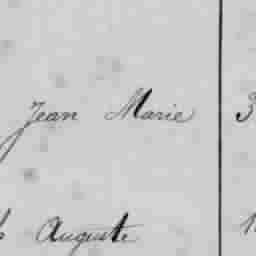 Jean Marie 3
Auguste